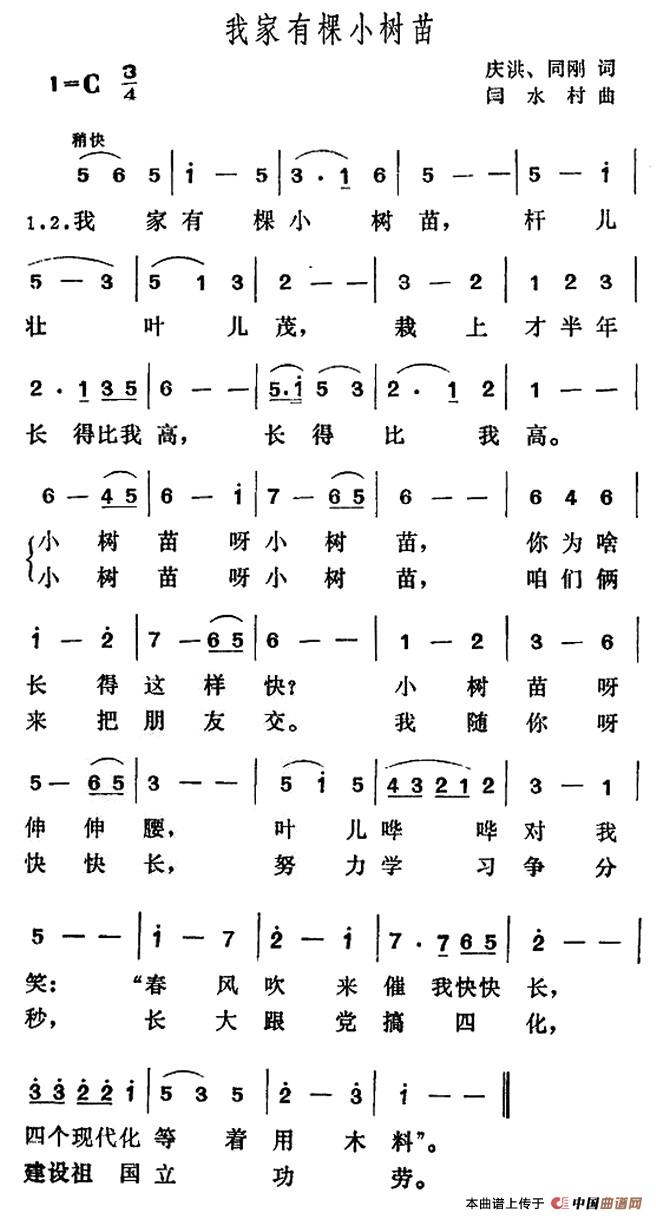 我家有棵小树苗
1=C 3/4
庆洪、同刚 词
闫水村 曲
稍快
5 6 5 | i — 5 | 3 · 1 6 | 5 — — | 5 — i |
1.2.我 家有 棵小 树苗， 杆儿
5 — 3 | 5 1 3 | 2 — — | 3 — 2 | 1 2 3 |
壮 叶儿茂， 栽上才半年
2 · 1 3 5 | 6 — — | 5 · i 5 3 | 2 · 1 2 | 1 — — |
长得比我高， 长得比我高。
6 — 4 5 | 6 — i | 7 — 6 5 | 6 — — | 6 4 6 |
小树苗呀小树苗， 你为啥
小树苗呀小树苗， 咱们俩
i — 2 | 7 — 6 5 | 6 — — | 1 — 2 | 3 — 6 |
长得这样快？ 小树苗呀
来把朋友交。 我随你呀
5 — 6 5 | 3 — — | 5 i 5 | 4 3 2 1 2 | 3 — 1 |
伸伸腰， 叶儿哗哗对我
快快长， 努力学习争分
5 — — | i — 7 | 2 — i | 7 · 7 6 5 | 2 — — |
笑：“春风吹来催我快快长，
秒， 长大跟党搞四化，
3 3 2 2 i | 5 3 5 | 2 — 3 | i — — ‖
四个现代化等着用木料”。
建设祖国立功劳。
本曲谱上传于 中国曲谱网